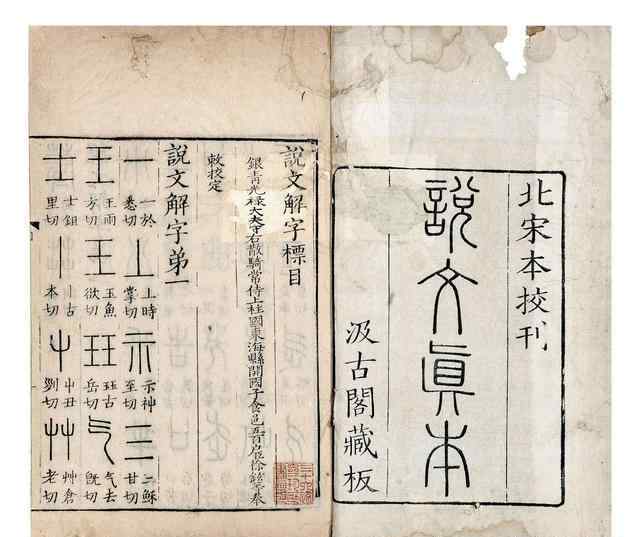 北宋本挍刊
說文眞本
汲古閣藏板
說文解字標目
銀青光祿大夫守右散騎常侍上柱國東海縣開國子食邑五百戶臣徐鉉等奉
敕挍定
說文解字弟一
一 一於悉切 丄 上時掌切 示 示神至切 三 三穌甘切
王 王雨方切 玉 玉魚欲切 玨 玨古岳切 气 气去旣切
士 士鉏里切 丨 丨古本切 屮 屮丑劉切 艸 艸倉老切